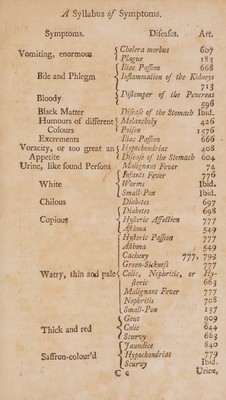 A Syllabus of Symptoms.
Symptoms. Diseases. Art.
Vomiting, enormous Cholera morbus 607
Plague 183
Iliac Passion 668
Bile and Phlegm Inflammation of the Kidneys
713
Bloody Distemper of the Pancreas
596
Black Matter Disease of the Stomach Ibid.
Humours of different Melancholy 426
Colours Poison 1576
Excrements Iliac Passion 666
Voracity, or too great an Hypochondriac 408
Appetite Disease of the Stomach 604
Urine, like sound Persons Malignant Fever 74
Infants Fever 776
White Worms Ibid.
Small-Pox Ibid.
Chilous Diabetes 697
Diabetes 698
Copious Hysteric Affection 777
Asthma 549
Hysteric Passion 777
Asthma 549
Cachexy 777, 795
Green-Sickness 777
Watry, thin and pale Colic, Nephritic, or Hy-
steric 663
Malignant Fever 777
Nephritis 708
Small-Pox 137
Gout 909
Thick and red Colic 644
Scurvy 663
Jaundice 840
Saffron-colour'd Hypochondriac 779
Scurvy Ibid.
C c Urine,